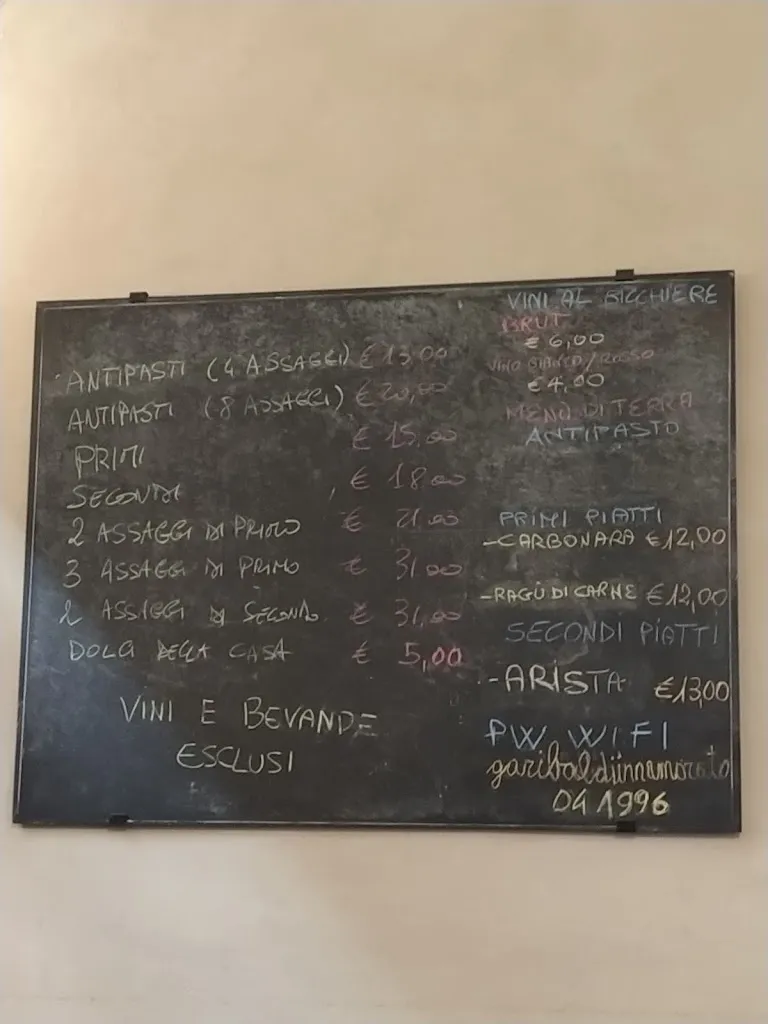 ANTIPASTI (4 ASSAGGI) € 13,00
ANTIPASTI (8 ASSAGGI) € 20,00
PRIMI € 15,00
SECONDI € 18,00
2 ASSAGGI DI PRIMO € 21,00
3 ASSAGGI DI PRIMO € 31,00
2 ASSAGGI DI SECONDO € 31,00
DOLCI DELLA CASA € 5,00
VINI E BEVANDE
ESCLUSI
VINI AL BICCHIERE
BRUT
€ 6,00
VINO BIANCO/ROSSO
€ 4,00
MENÙ DI TERRA
ANTIPASTO
PRIMI PIATTI
-CARBONARA €12,00
-RAGÙ DI CARNE €12,00
SECONDI PIATTI
-ARISTA €13,00
PW WIFI
garibaldiinnamorato
04 1996